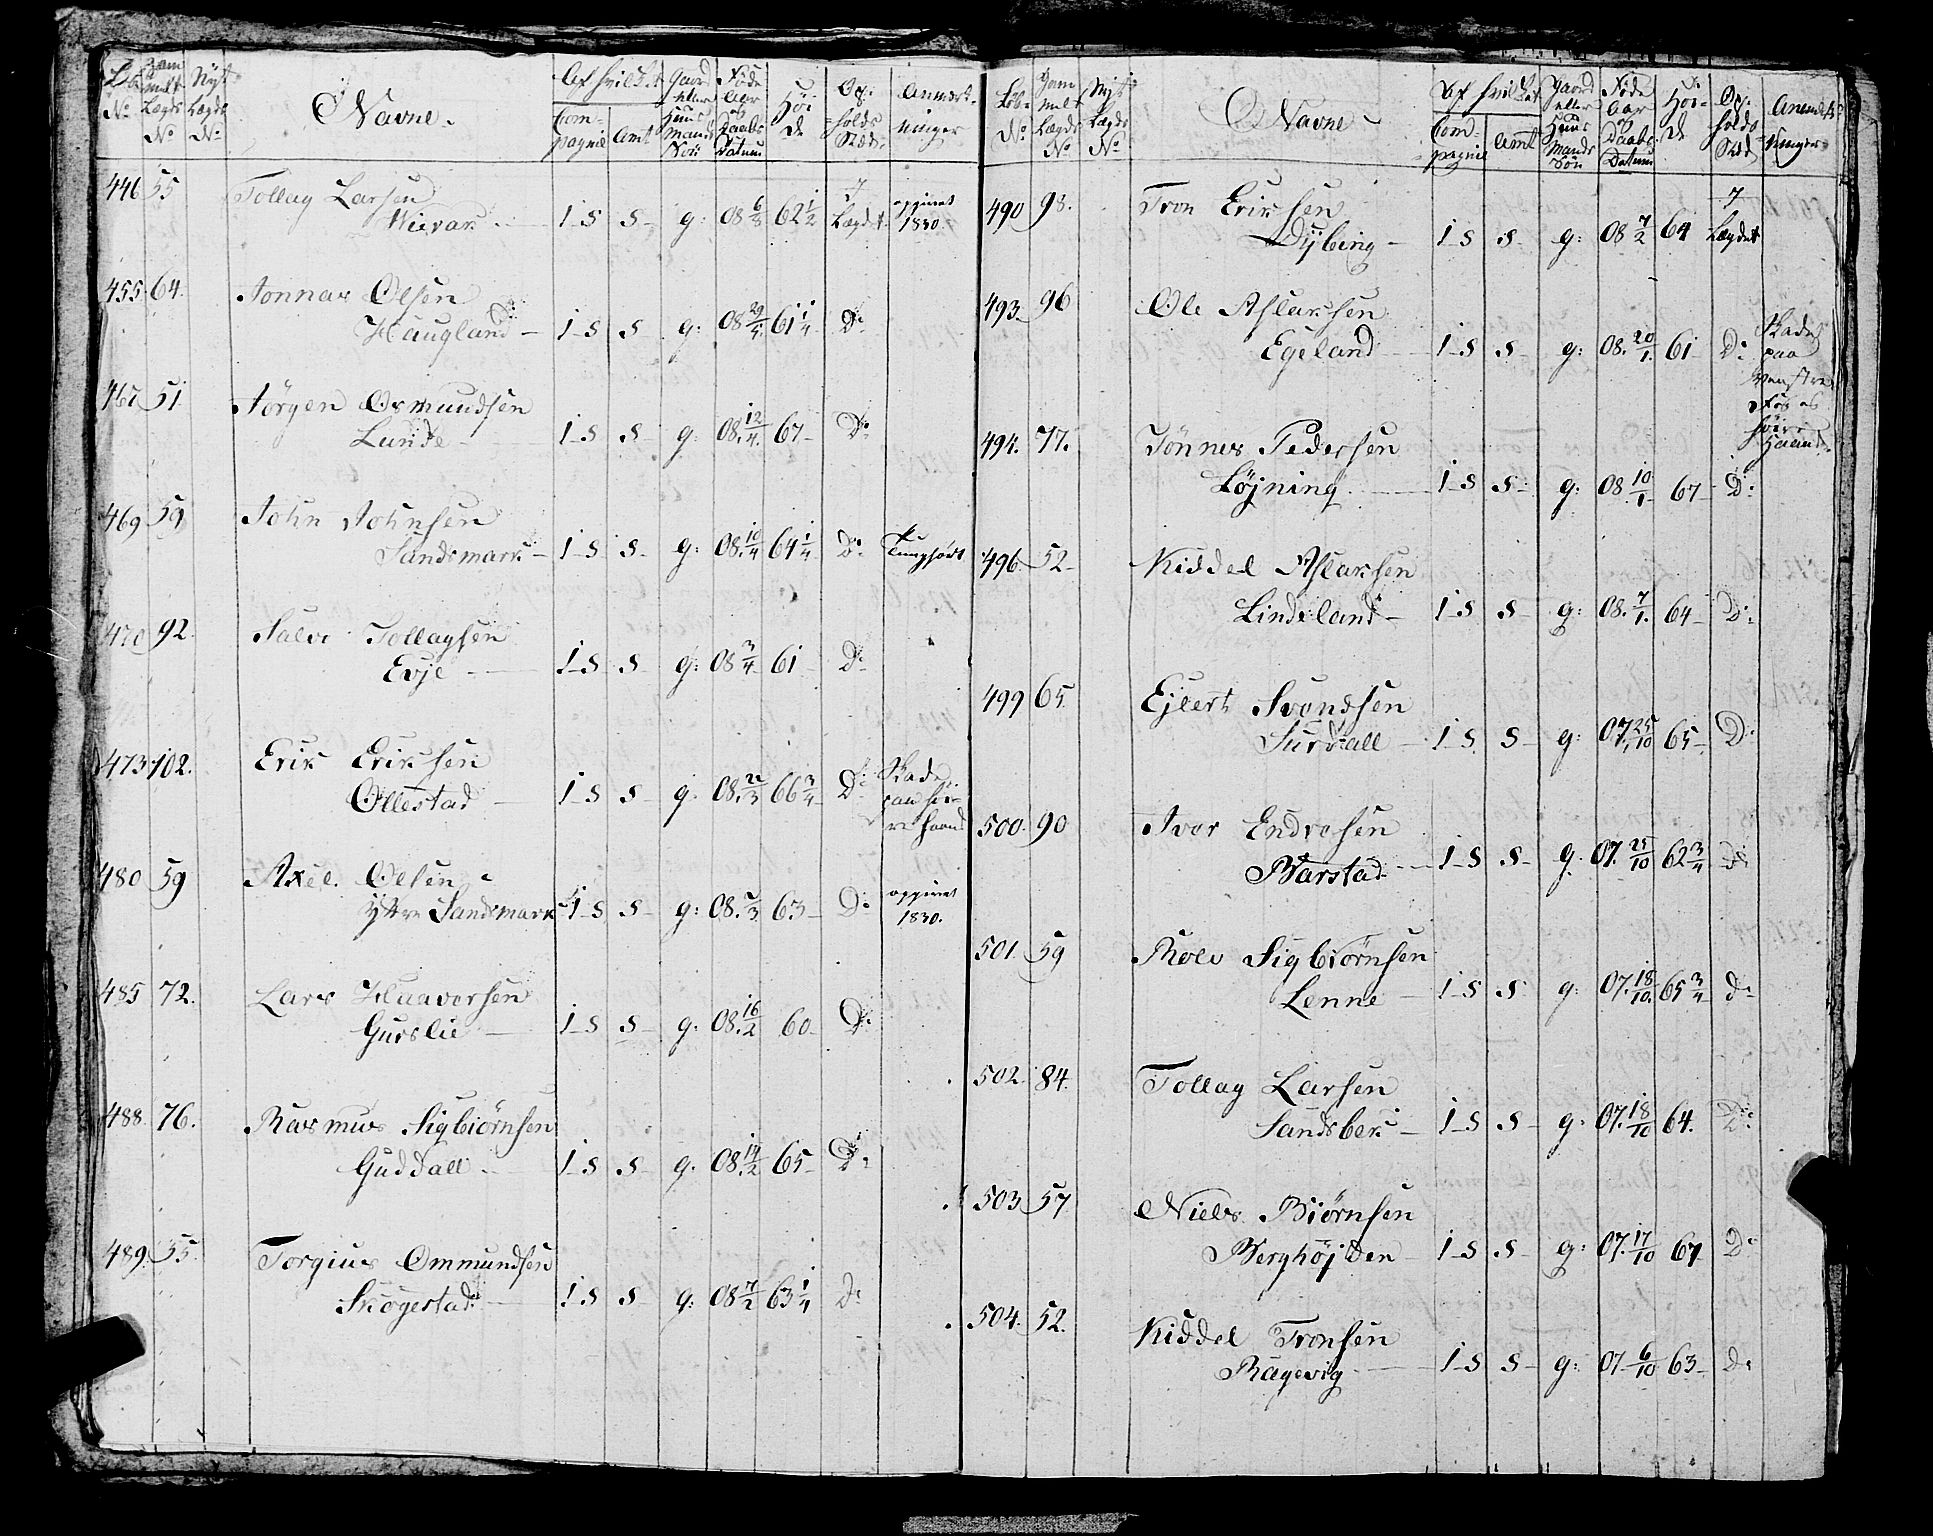 Løb. No. | Gammelt Lægds No. | Nyt Lægds No. | Navne. | Af hvilket Compagnie | Amt | Gaard eller Huusmands Søn | Føde Aar og Daabs Datum | Høide | Opholds Stæd. | Anmærkninger
446 | 55 | Tollag Larsen
1_S | S_ | g: | 08 6/3 | 62 1/2 | I Lægdet. | 1830.
455. | 64. | Tønnas Olsen
Haugland | 1_S | S | g: | 08 29/4. | 61 1/4 | Do
467 | 51 | Jörgen Osmundsen
Lunde | 1_S | S_ | g. | 08. 12/4. | 67_ | Do
469 | 59 | John Johnsen
Sandsmark_ | 1_S | S_ | g: | 08. 10/4 | 64 1/4 | Do | Tunghørt
470 | 92. | Salve Tollagsen
Evje | 1_S | S_ | g: | 08 3/4 | 61 | Do
473 | 102. | Erik Eriksen
Ollestad | 1_S | S | g. | 08. 22/3 | 66 3/4 | Do | Skade paa höire haand
480 | 59 | Axel Olsen
Yttre Sandsmark | 1_S | S_ | g: | 08. 2/3 | 63_ | Do | 1830.
485 | 72. | Lars Haaversen
Gurslie | 1_S | S_ | g: | 08. 16/2 | 60_ | Do
488. | 76. | Rasmus Sigbiörnsen
Guddall | 1_S | S_ | g. | 08. 14/2 | 65_ | Do
489. | 55. | Torgius Ommundsen
Skogestad | 1_S | S_ | g: | 08 7/2 | 63 1/4 | Do
Løb. No. | Gammelt Lægds No. | Nyt Lægds No. | Navne. | Af hvilket Compagnie | Amt | Gaard eller Huus Mands Søn | Føde Aar og Daabs Datum | Høide | Opholds Stæd | Anmærkninger
490 | 98. | Tron Eriksen
Dybing_ | 1_S | S_ | g: | 08 7/2 | 64 | I Lægdet
493. | 96 | Ole Aslaksen
Egeland | 1_S | S_ | g: | 08. 20/1. | 61_ | Do | Skade paa venstre Fod og höire Haand.
494. | 77. | Tönnes Pedersen
Löjning | 1_S | S_ | g: | 08. 10/1 | 67_ | Do
496. | 52_ | Kiddel Aslaksen
Lindeland_ | 1_S | S_ | g: | 08. 7/1. | 64_ | Do
499 | 65. | Ejlert Svendsen
Surdall | 1_S | S_ | g: | 07 25/10 | 65_ | Do
500. | 90 | Ivar Endresen
Barstad | 1_S | S_ | g. | 07. 25/10 | 62 3/4 | Do
501. | 59 | Rolv Sigbiörnsen
Lenne | 1_S | S | g: | 07. 18/10. | 65 3/4 | Do
502. | 84. | Tollag Larsen
Sandsberk | 1_S | S_ | g: | 07. 18/10 | 64. | Do
503. | 57. | Niels Biörnsen
Berghöjden | 1_S | S_ | g: | 07. 17/10 | 67 | Do
504. | 52. | Kiddel Tronsen
Ragevig | 1_S | S_ | g: | 07_ 6/10 | 63_ | Do